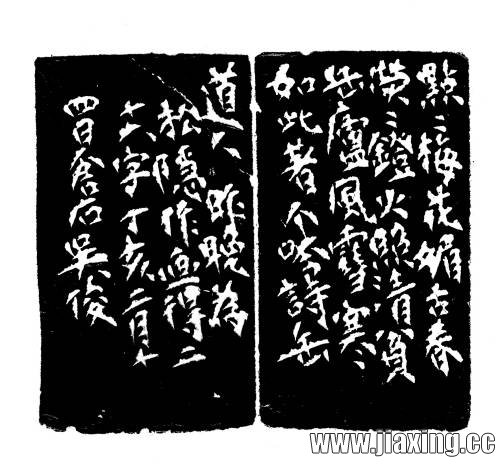 點〻梅花媚古春
熒〻鐙火照清貧
缶廬風雪寒
如此著个吟詩缶
道人 昨晚為
松隱作畫得二
十八字丁亥二月十
四日倉石吳俊
www.jiaxing.cc